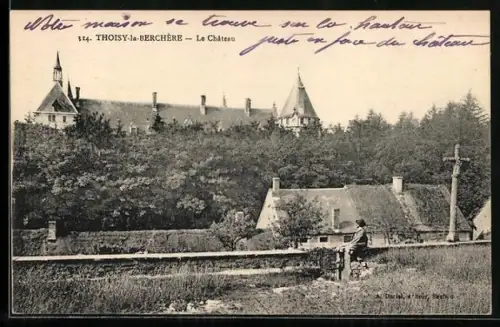 Notre maison se trouve sur la hauteur
juste en face du château
324. THOISY-la-BERCHÈRE — Le Château